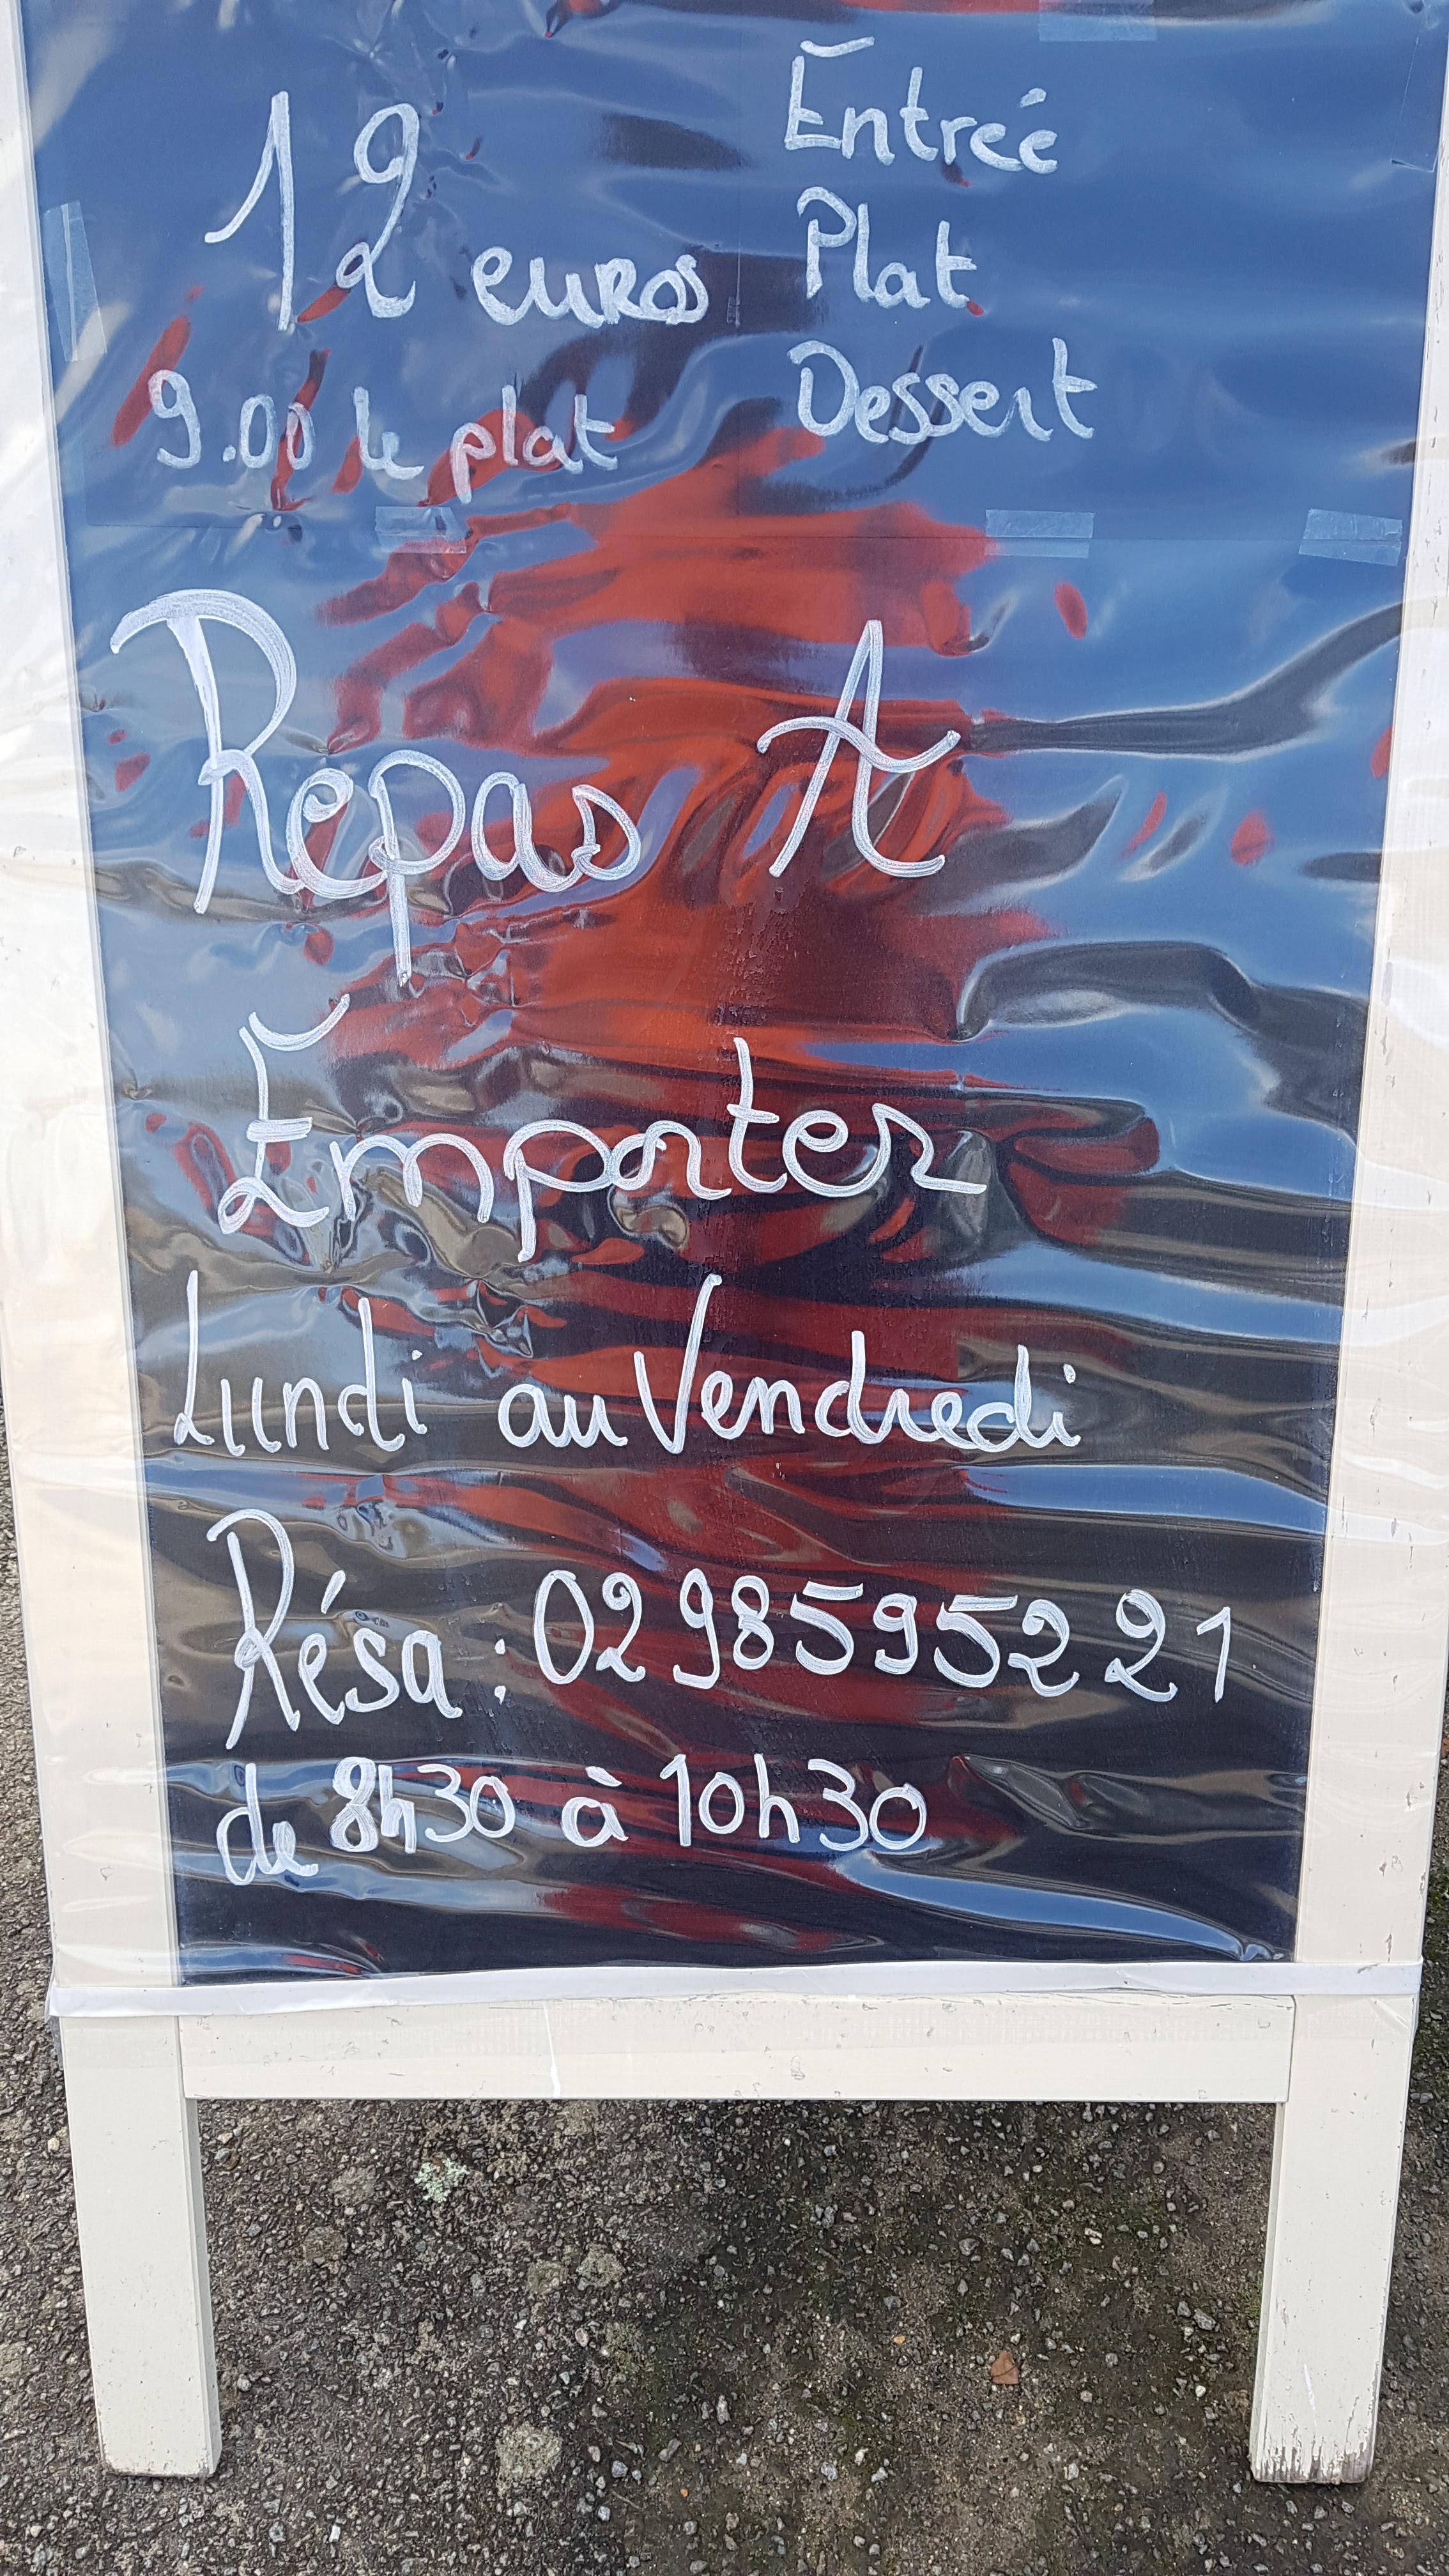 12 euros
Entrée
Plat
Dessert
9.00 le plat
Repas A
Emporter
Lundi au Vendredi
Résa : 02 98 59 52 21
de 8h30 à 10h30